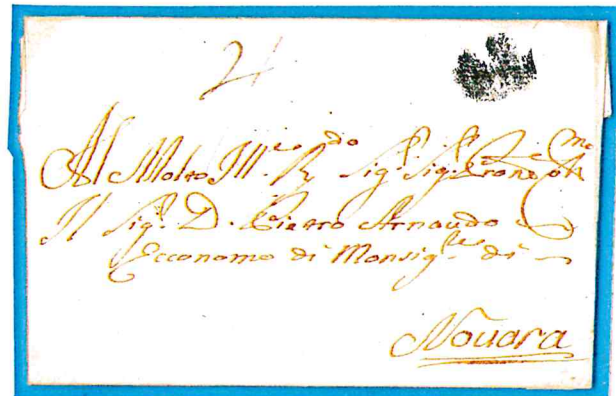 2
Al Molto Ill.re R.do Sig.r Sig.r Pron
Il Sig.r D. Pietro Arnaudo
Ecconomo di Monsig.re di
Nouara